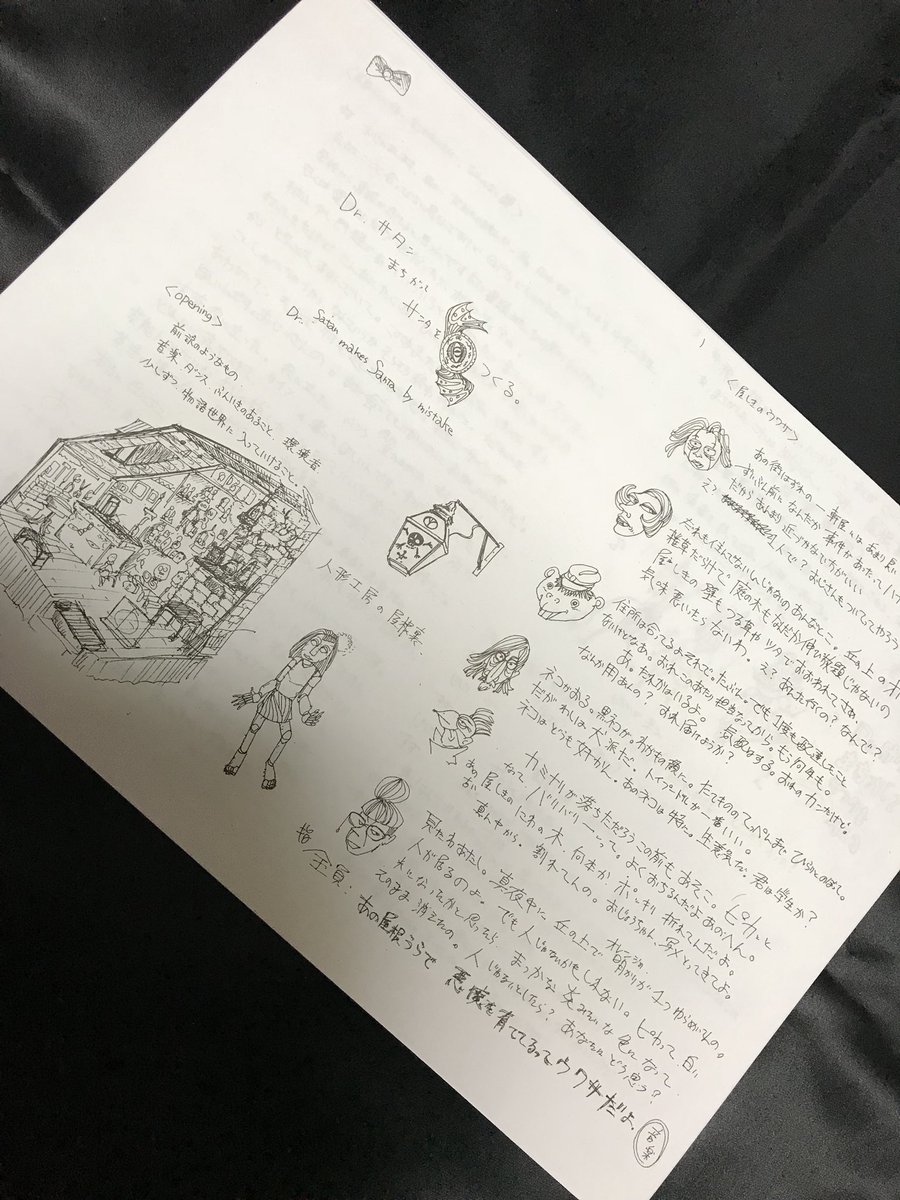 Dr. サタン
まちがって
サンタを
つくる。
Dr. Satan
makes Santa by mistake
<opening>
前説のようなもの
音楽、ダンス、ふんいきのあること、
少しずつ物語世界に入っていけること。
人形工房の屋根裏、
1
<屋しきのウワサ>
あの街はずれの一軒屋には、あまり良い
ずいぶん前に、なんだか事件があったって
だからあんまり近づかない方がいい
え?
だれも住んでないんじゃないの、あんなとこ。丘の上の
雑草だって、庭の木もなんだか伸び放題じゃないの
屋しきの壁もつる草やツタでおおわれてさあ、
気味悪いったらないわ。え?あんた行くの?なんで?
住所は合ってるよそれで。たぶん。でも1度も配達したこと
ないけどなあ。おれこのあたり担当なってから、もう何年も。
あ。だれかはいるよ。気配はするよ。おれのカンだけど。
なんか用あんの?
ネコがいる。黒ネコが。
だがわしは犬派だ。トイプードルが一番いい。
ネコはどうも好かん。あのネコは特に。生意気だ。君は学生か?
カミナリが落ちただろうこの前もあそこ。ピカッと
なって、バリバリーって。よくおちるんだよあのへん。
あの屋しきのにわの木、何本か、ポッキリ折れてんだよ。
真ん中から。割れてんの。おじょうちゃん、写メとってきてよ。
見たわあたし。真夜中に、丘の上で、オレンジの明かりが1つゆらめいてんの。
人が居るのよ。でも人じゃないかもしれない。ピカって、白い
光になったかと思ったら、まっかな炎みたいな色になって
そのまま消えたの。人じゃないとしたら?あなたはどう思う?
全員、
あの屋根うらで、悪魔を育ててるってウワサだよ。
音楽